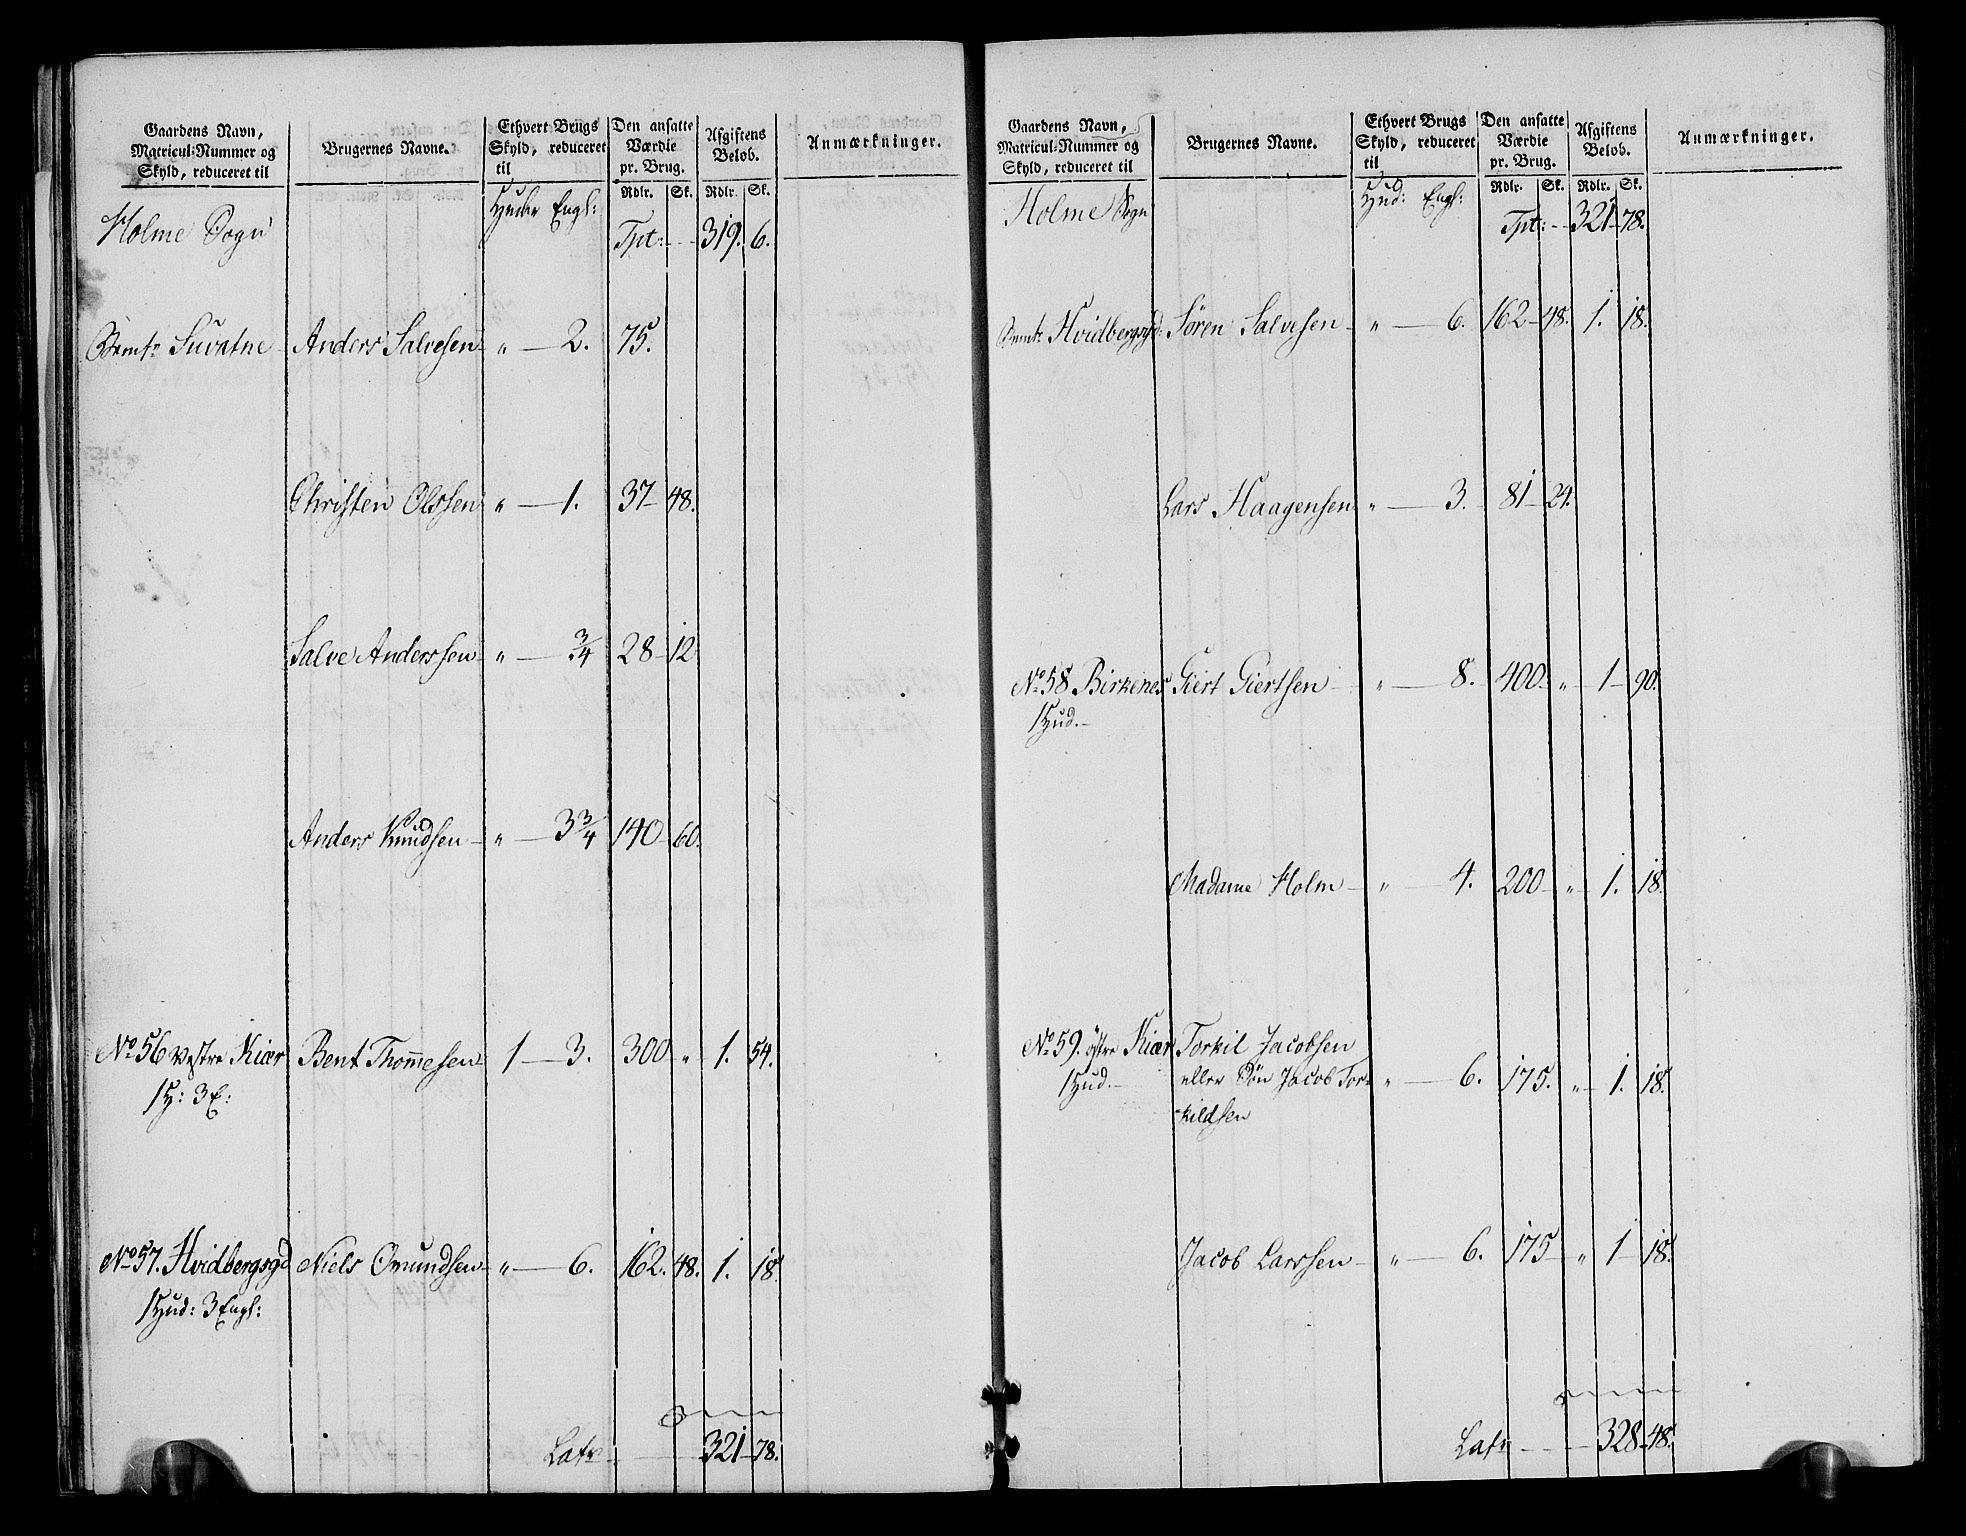 Gaardens Navn, Matricul-Nummer og Skyld, reduceret til | Brugernes Navne. | Ethvert Brugs Skyld, reduceret til | Den ansatte Værdie pr. Brug. Rdlr. Sk. | Afgiftens Beløb. Rdlr. Sk. | Anmærkninger.
Holme Sogn | Huder Engl: | Tpt: - - 319. 6.
Bemte Suvatne | Anders Salvesen | " — 2. | 75.
Christen Olssen | " — 1. | 37 – 48.
Salve Anderssen | " — 3/4 | 28 – 12
Anders Knudsen | " — 3 3/4 | 140 – 60.
No 56 Vestre Kiær | Bent Thom̄esen | 1 — 3. | 300 " | 1. 54.
1 H: 3 E:
No 57. Hvidbergsgd | Niels Omundsen | " — 6. | 162. 48. | 1. 18
1 Hud: 3 Engl:
Latr - - 321 – 78.
Gaardens Navn, Matricul-Nummer og Skyld, reduceret til | Brugernes Navne. | Ethvert Brugs Skyld, reduceret til | Den ansatte Værdie pr. Brug. Rdlr. Sk. | Afgiftens Beløb. Rdlr. Sk. | Anmærkninger.
Holme Sogn | Hud: Engl: | Tpt: - - 321 – 78.
Bemte Hvidbergsgd: | Søren Salvesen | " — 6. | 162 – 48. | 1. 18.
Lars Haagensen | " — 3. | 81 – 24.
No 58 Birkenes | Giert Giertsen | " — 8. | 400. " | 1 – 90.
1 Hud. –
Madame Holm | " — 4. | 200 – " | 1. 18.
No 59. østre Kiær | Torkil Jacobsen
1 Hud. – | eller Søn Jacob Tor- | " — 6. | 175. " | 1. 18.
kildsen
Jacob Larssen | " — 6. | 175 " | 1 – 18.
Latr - - - 328 – 48.